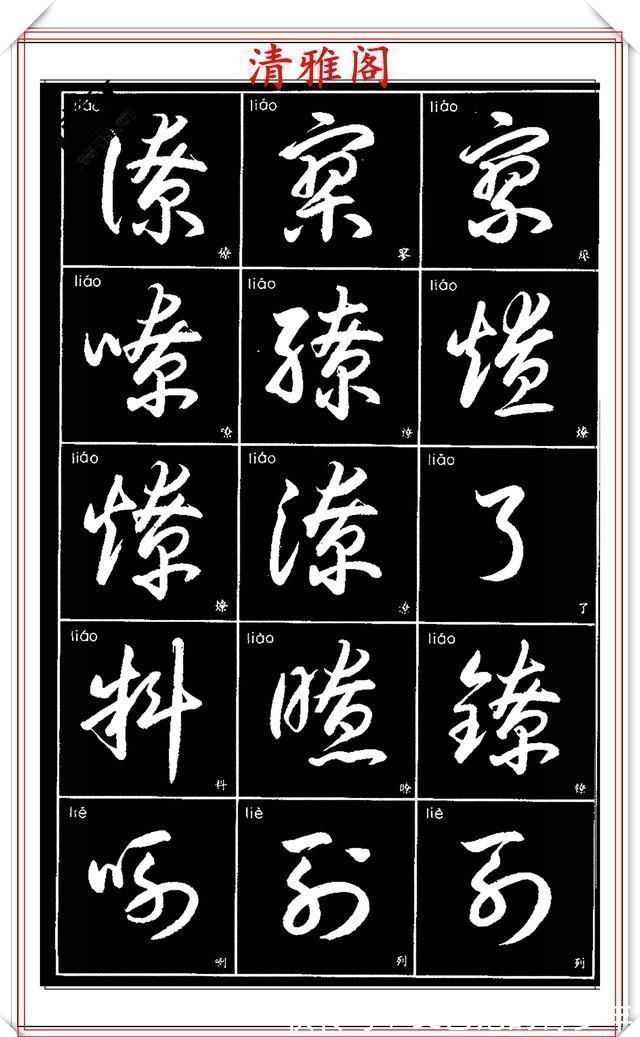 清雅阁
liáo liáo liáo
僚 寮 寮
僚 寥
liáo liáo liáo
嘹 缭 燎
嘹 缭 燎
liáo liáo liǎo
燎 潦 了
燎 潦 了
liáo liào liáo
料 瞭 镣
料 瞭 镣
liě liè liè
咧 列 列
咧 列 列